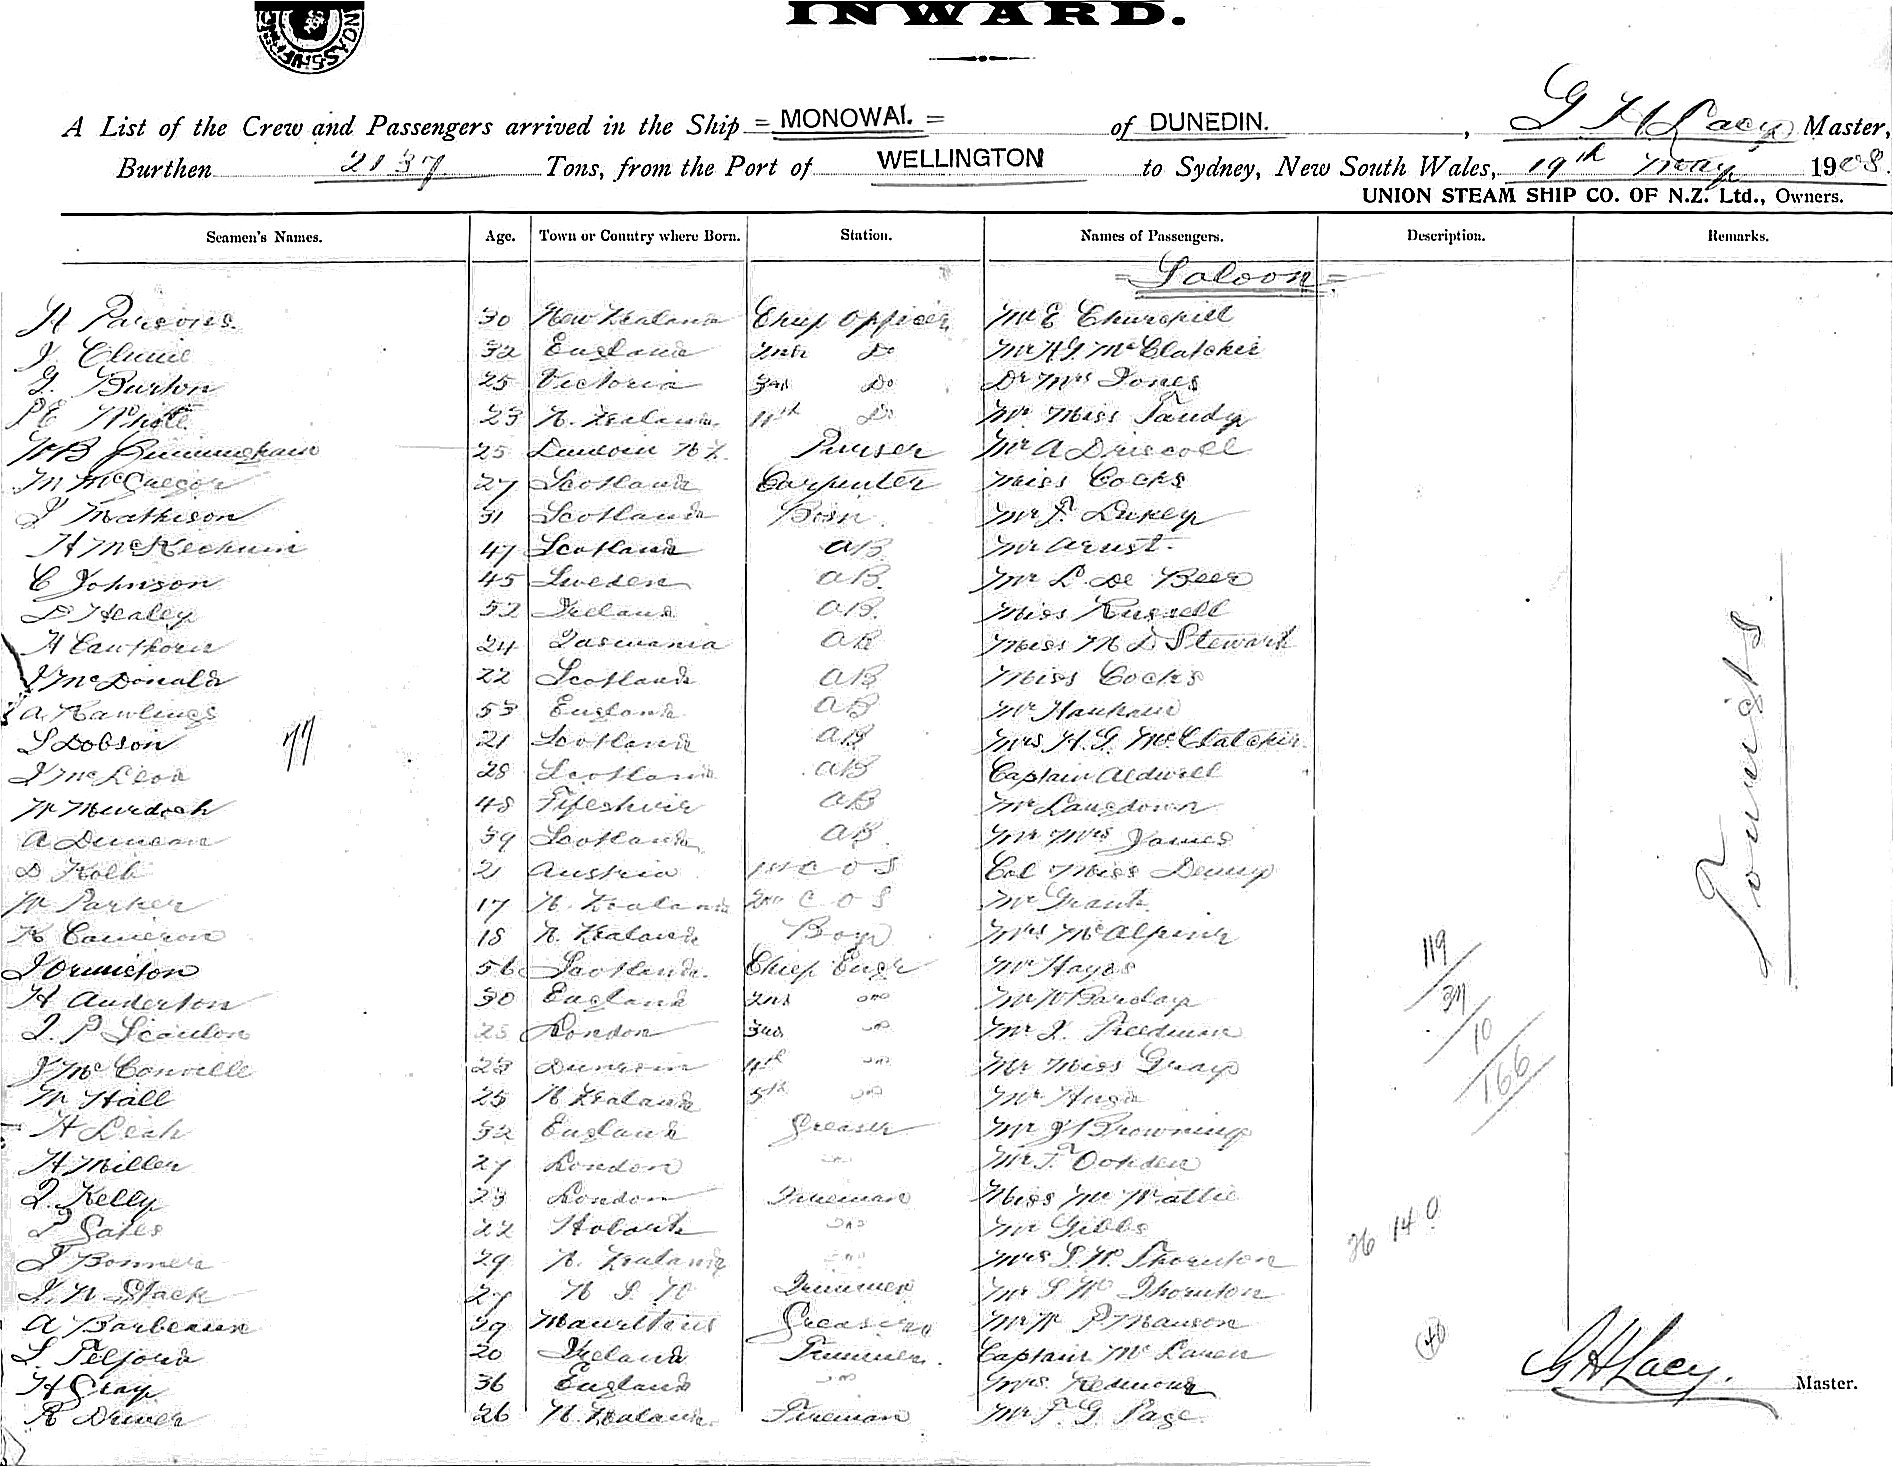 INWARD.
A List of the Crew and Passengers arrived in the Ship = MONOWAI. = of DUNEDIN. , G H Lacy Master,
Burthen 2137 Tons, from the Port of WELLINGTON to Sydney, New South Wales, 19th May 1908.
UNION STEAM SHIP CO. OF N.Z. Ltd., Owners.
Seamen's Names. Age. Town or Country where Born. Station. Names of Passengers. Description. Remarks.
= Saloon =
H Parsons. 30 New Zealand Chief Officer Mr E Churchill
J. Clunie 32 England 2nd Do Mr H G McClatchie
G. Burton 25 Victoria 3rd Do Dr Mrs Jones
P E 23 N. Zealand. 4th Do Mr Miss Tandy
W B Birmingham 25 Dunedin N Z. Purser Mr A Driscoll
M McGregor 27 Scotland Carpenter Miss Cocks
J Mathison 31 Scotland Bosn. Mr F.
H McKechnin 47 Scotland AB Mr
C Johnson 45 Sweden AB. Mr L. De Beer
D Healey 52 Ireland AB. Miss Russell
H Cawthorn 24 Tasmania AB Miss M D Stewart
J McDonald 22 Scotland AB Miss Cocks
A. Rawlings 53 England AB Mr
S Dobson 21 Scotland AB Mrs H. G. McClatchie
77
J McLeod 28 Scotland AB Captain Aldwell
W Murdoch 48 Fifeshire AB Mr Langdown
A Duncan 39 Scotland AB. Mr Mrs James
D Kolb 21 Austria 1st C O S Col Miss Denny
W Parker 17 N. Zealand 2nd C O S Mr Grant.
K Cameron 18 N. Zealand Boy Mrs McAlpine
J Ormiston 56 Scotland. Chief Engr Mr Hayes
119
H Anderton 30 England 2nd " Mr W Barclay
37
J. P Scanlon 25 London 3rd " Mr J. Freedman
10
J McConville 23 Dunedin 4th " Mr Miss Gray
166
W Hall 25 N Zealand 5th " Mr Hugo
H Leah 32 England Greaser Mr J Browning
H Miller 27 London " Mr F.
J. Kelly 23 London Fireman Miss
P Gates 22 Hobart " Mr Gibbs
140
26
J Bonner 29 N. Zealand " Mrs S. W. Thornton
J. N Stack 27 N S W Trimmer Mr S W Thornton
A Barbeaux 29 Mauritius Greaser Mr W P Manson
40
L. Telford 20 Ireland Trimmer. Captain McLaren
H Gray 36 England " Mrs. Redmond
R Driver 26 N. Zealand. Fireman Mr F. G. Page.
Tourists.
G H Lacy. Master.